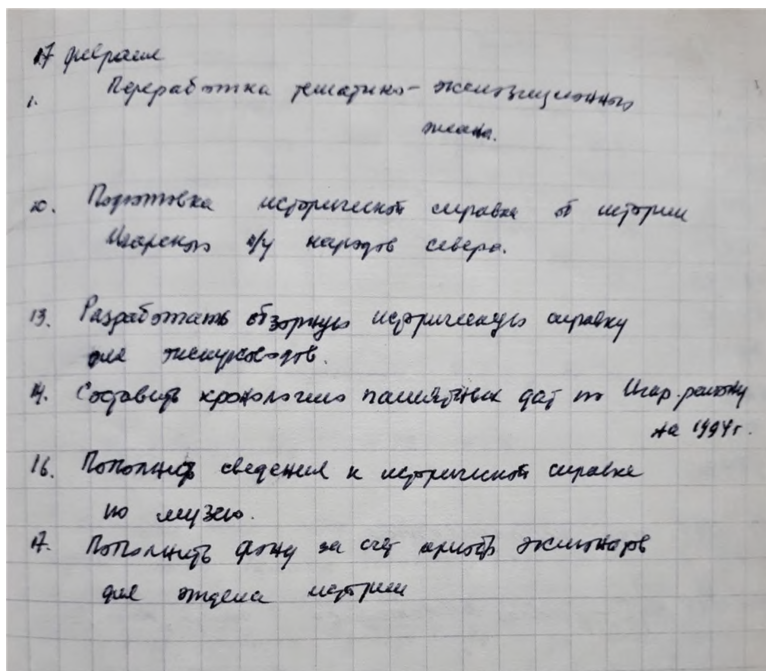 17 февраля
1. Переработка тематико-экспозиционного
плана.
10. Подготовка исторической справки об истории
Игарского п/у народов севера.
13. Разработать обзорную историческую справку
для экскурсоводов.
14. Составить хронологию памятных дат по Игар. району
на 1994 г.
16. Пополнить сведения к исторической справке
по музею.
17. Пополнить фонд за счёт экспонатов
для отдела истории